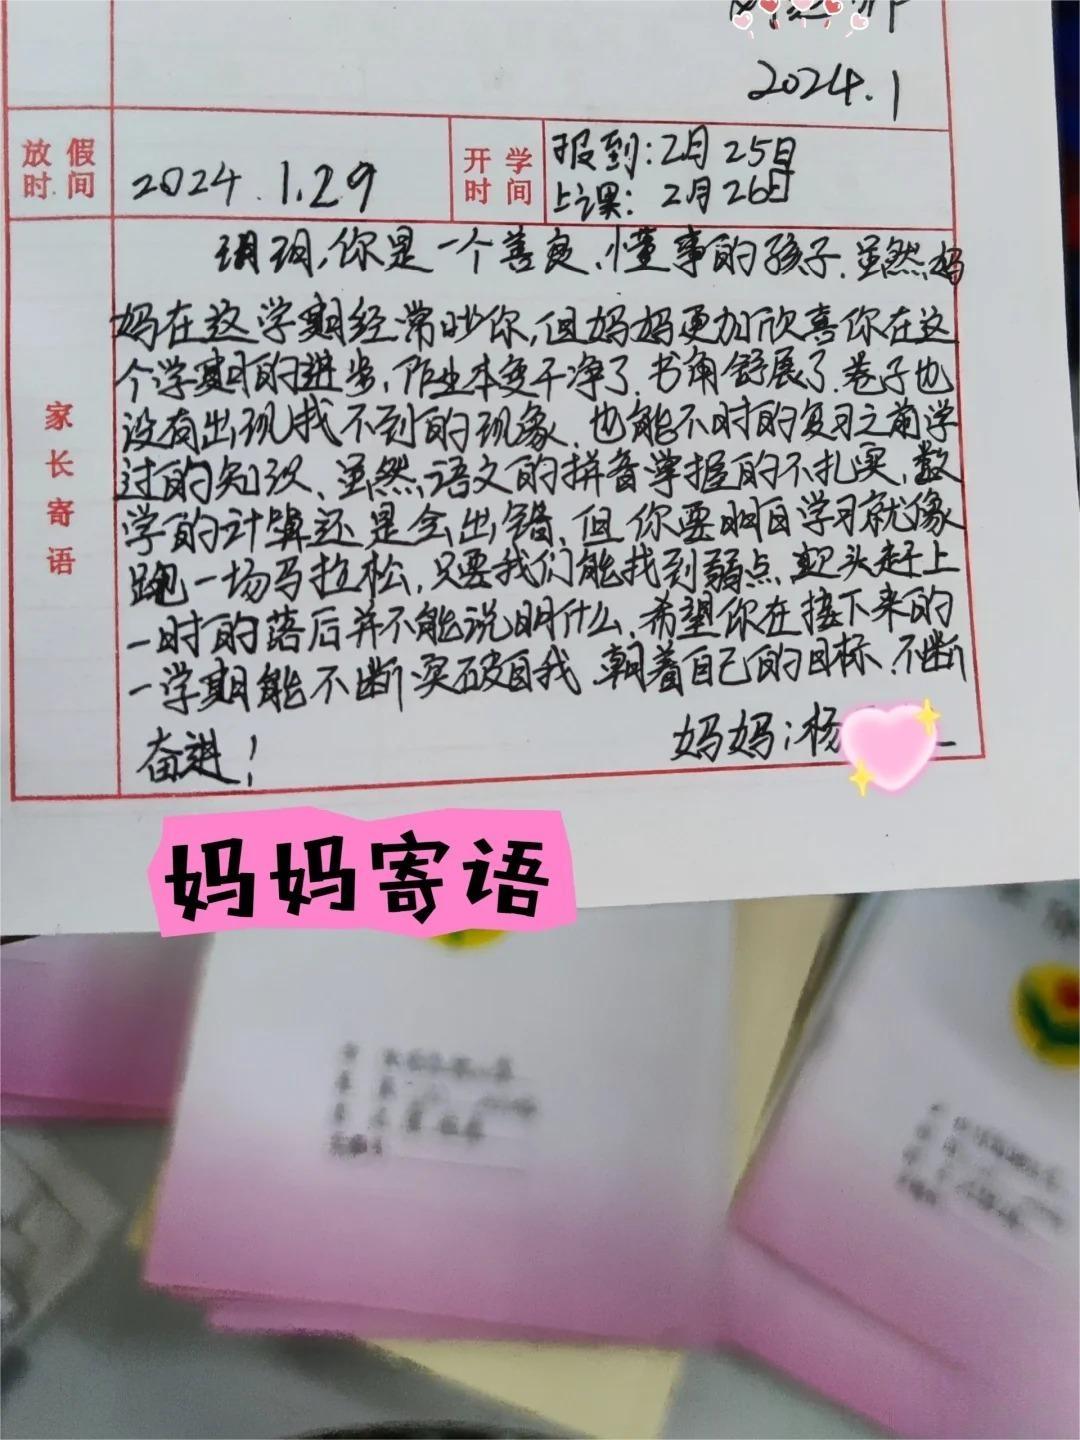 2024.1
放假时间
2024.1.29
开学时间
报到:2月25日
上课:2月26日
家长寄语
玥玥,你是一个善良、懂事的孩子.虽然妈
妈在这学期经常吵你,但妈妈更加欣喜你在这
个学期的进步,作业本变干净了.书角舒展了.卷子也
没有出现找不到的现象.也能不时的复习之前学
过的知识、虽然语文的拼音掌握的不扎实.数
学的计算还是会出错.但你要明白学习就像
跑一场马拉松,只要我们能找到弱点,迎头赶上
一时的落后并不能说明什么.希望你在接下来的
一学期能不断突破自我.朝着自己的目标.不断
奋进!
妈妈:杨
妈妈寄语